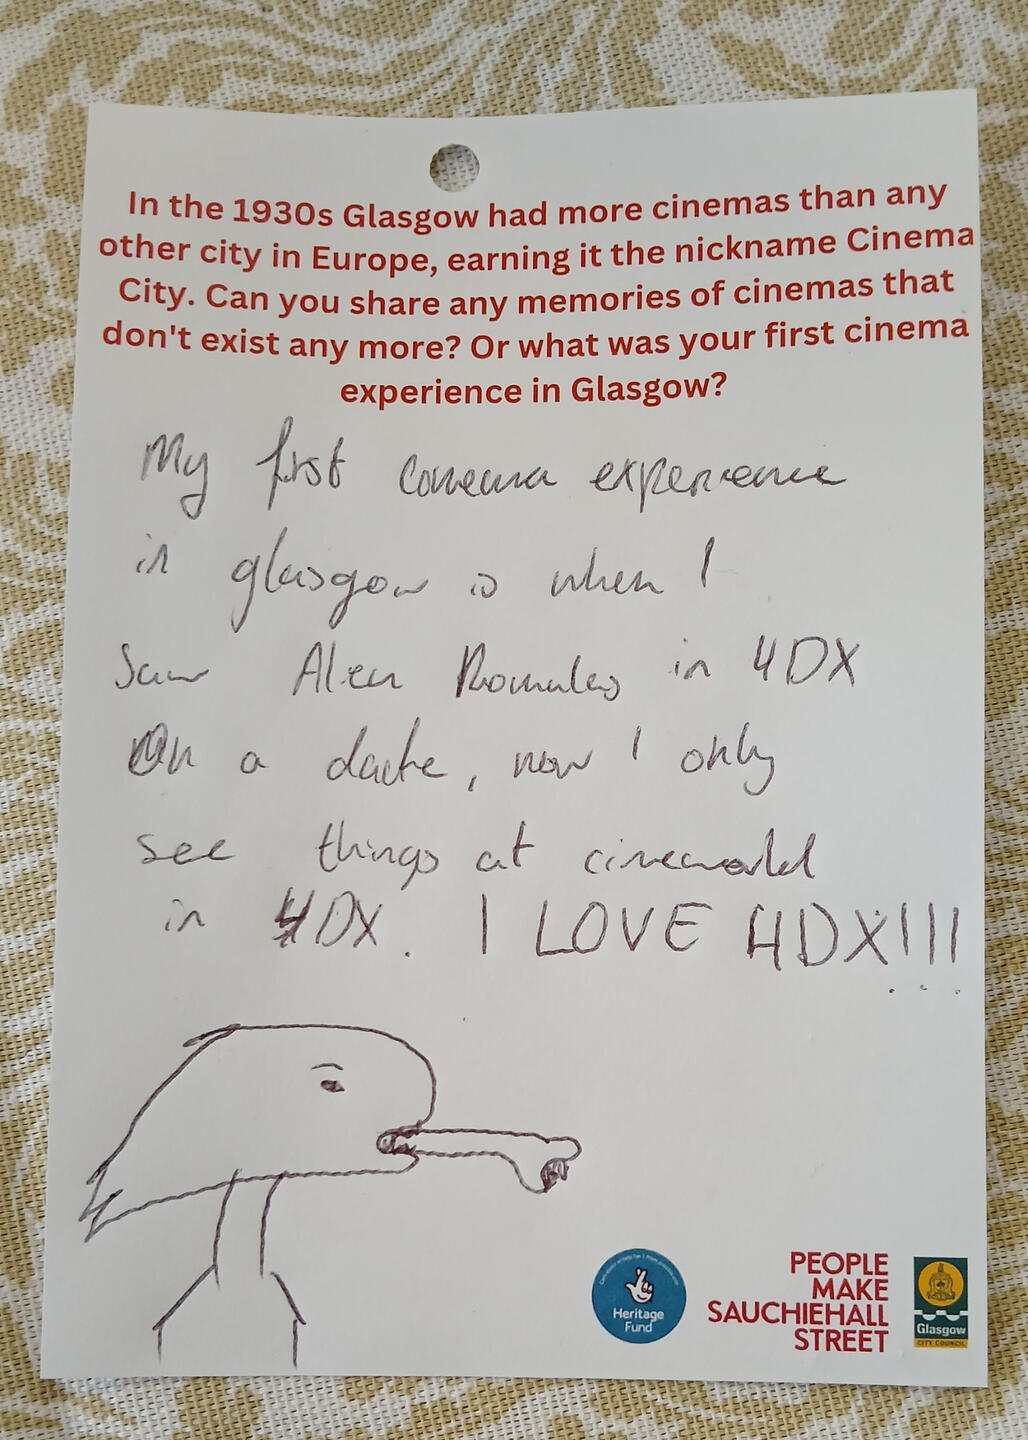 In the 1930s Glasgow had more cinemas than any
other city in Europe, earning it the nickname Cinema
City. Can you share any memories of cinemas that
don't exist any more? Or what was your first cinema
experience in Glasgow?
My first conema experience
in glasgow is when I
Saw Alien Romulus in 4DX
On a date, now I only
see things at cineworld
in 4DX. I LOVE 4DX!!!
Heritage
Fund
PEOPLE
MAKE
SAUCHIEHALL
STREET
Glasgow
CITY COUNCIL